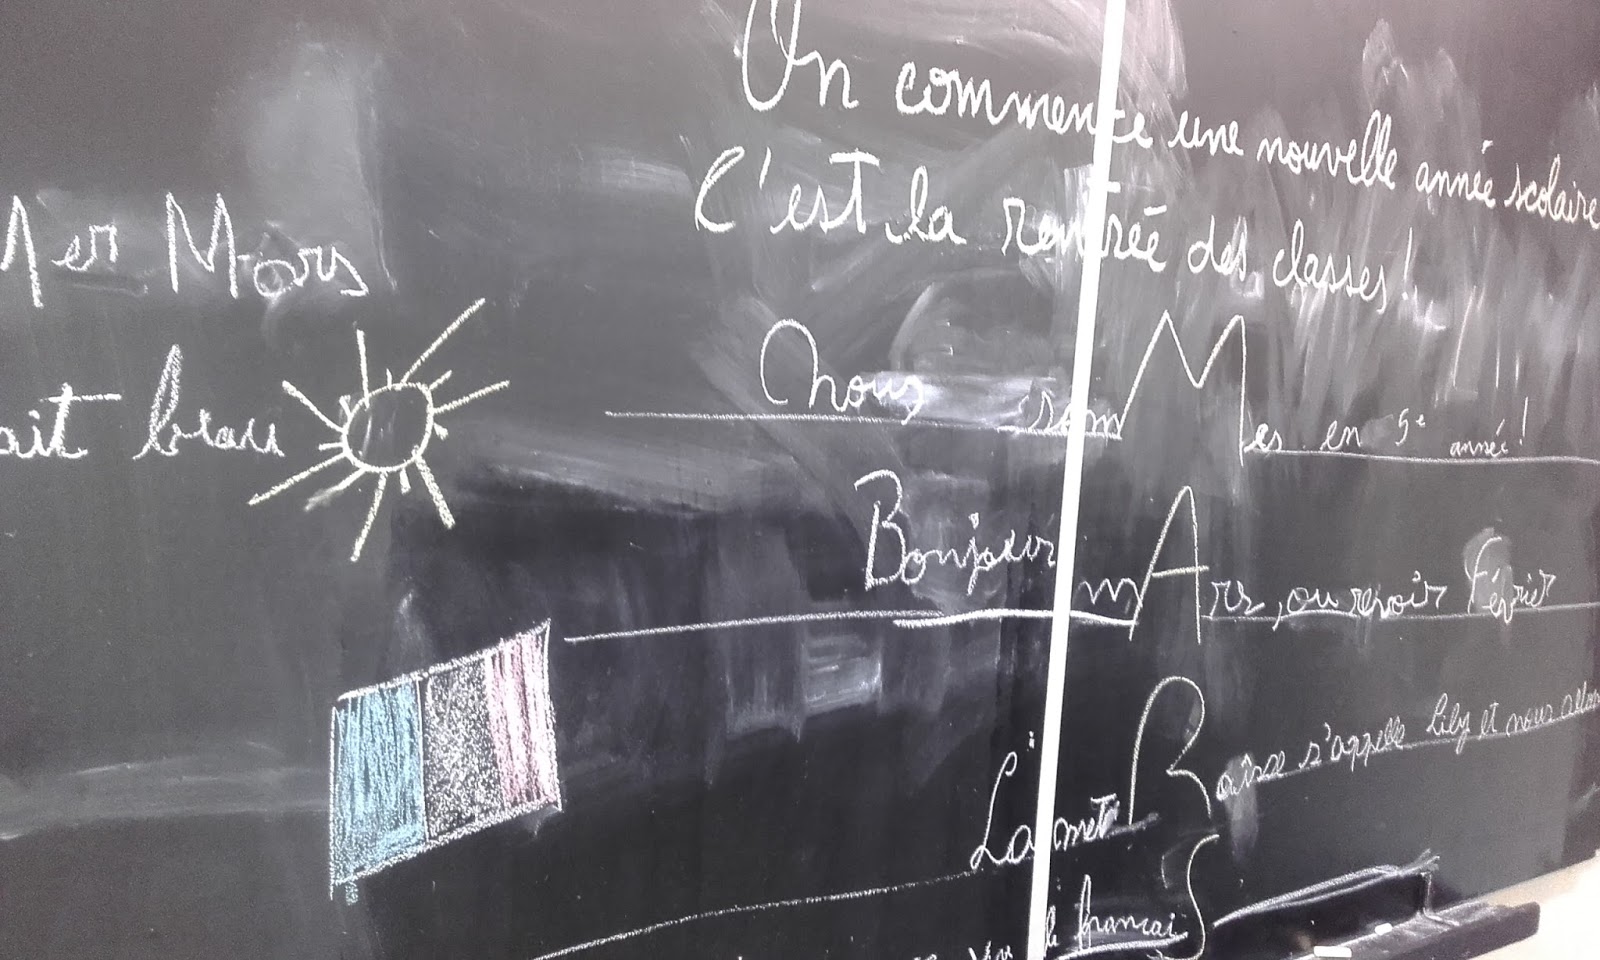 On commence une nouvelle année scolaire
C'est la rentrée des classes!
1er Mars
ait beau
Nous somMes en 5e année!
Bonjour mArs, au revoir Février
La metRaîsse s'appelle Lily et nous allon
le françaiS